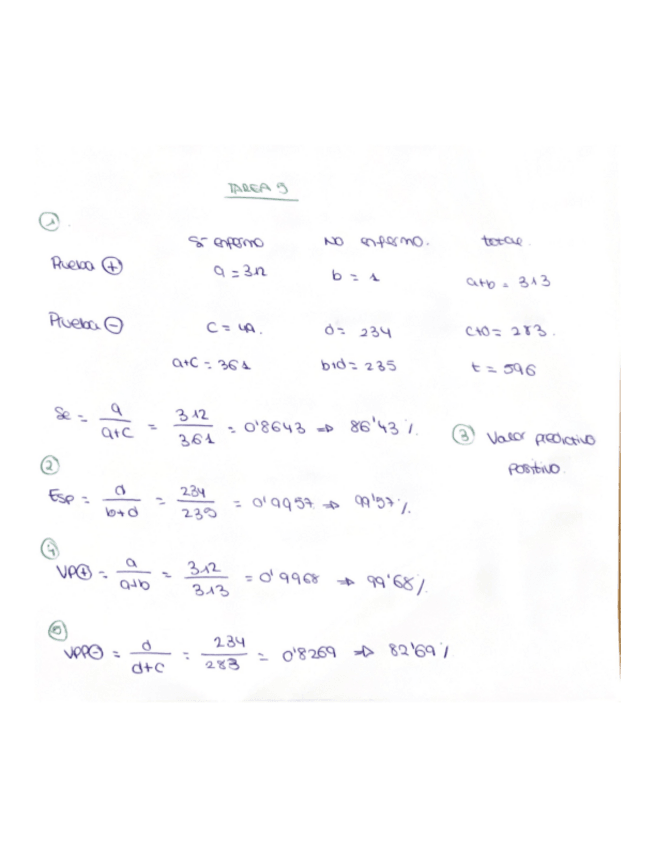 TAREA 9
1
Si enfermo No enfermo. total.
Prueba + a = 312 b = 1 a+b = 313
Prueba - c = 49. d = 234 c+d = 283.
a+c = 361 b+d = 235 t = 596
Se = a/a+c = 312/361 = 0'8643 ⇒ 86'43 %. 3 Valor predictivo
positivo.
2
Esp = d/b+d = 234/235 = 0'9957 ⇒ 99'57 %.
4
VP+ = a/a+b = 312/313 = 0'9968 ⇒ 99'68 %.
5
VPP- = d/d+c = 234/283 = 0'8269 ⇒ 82'69 %